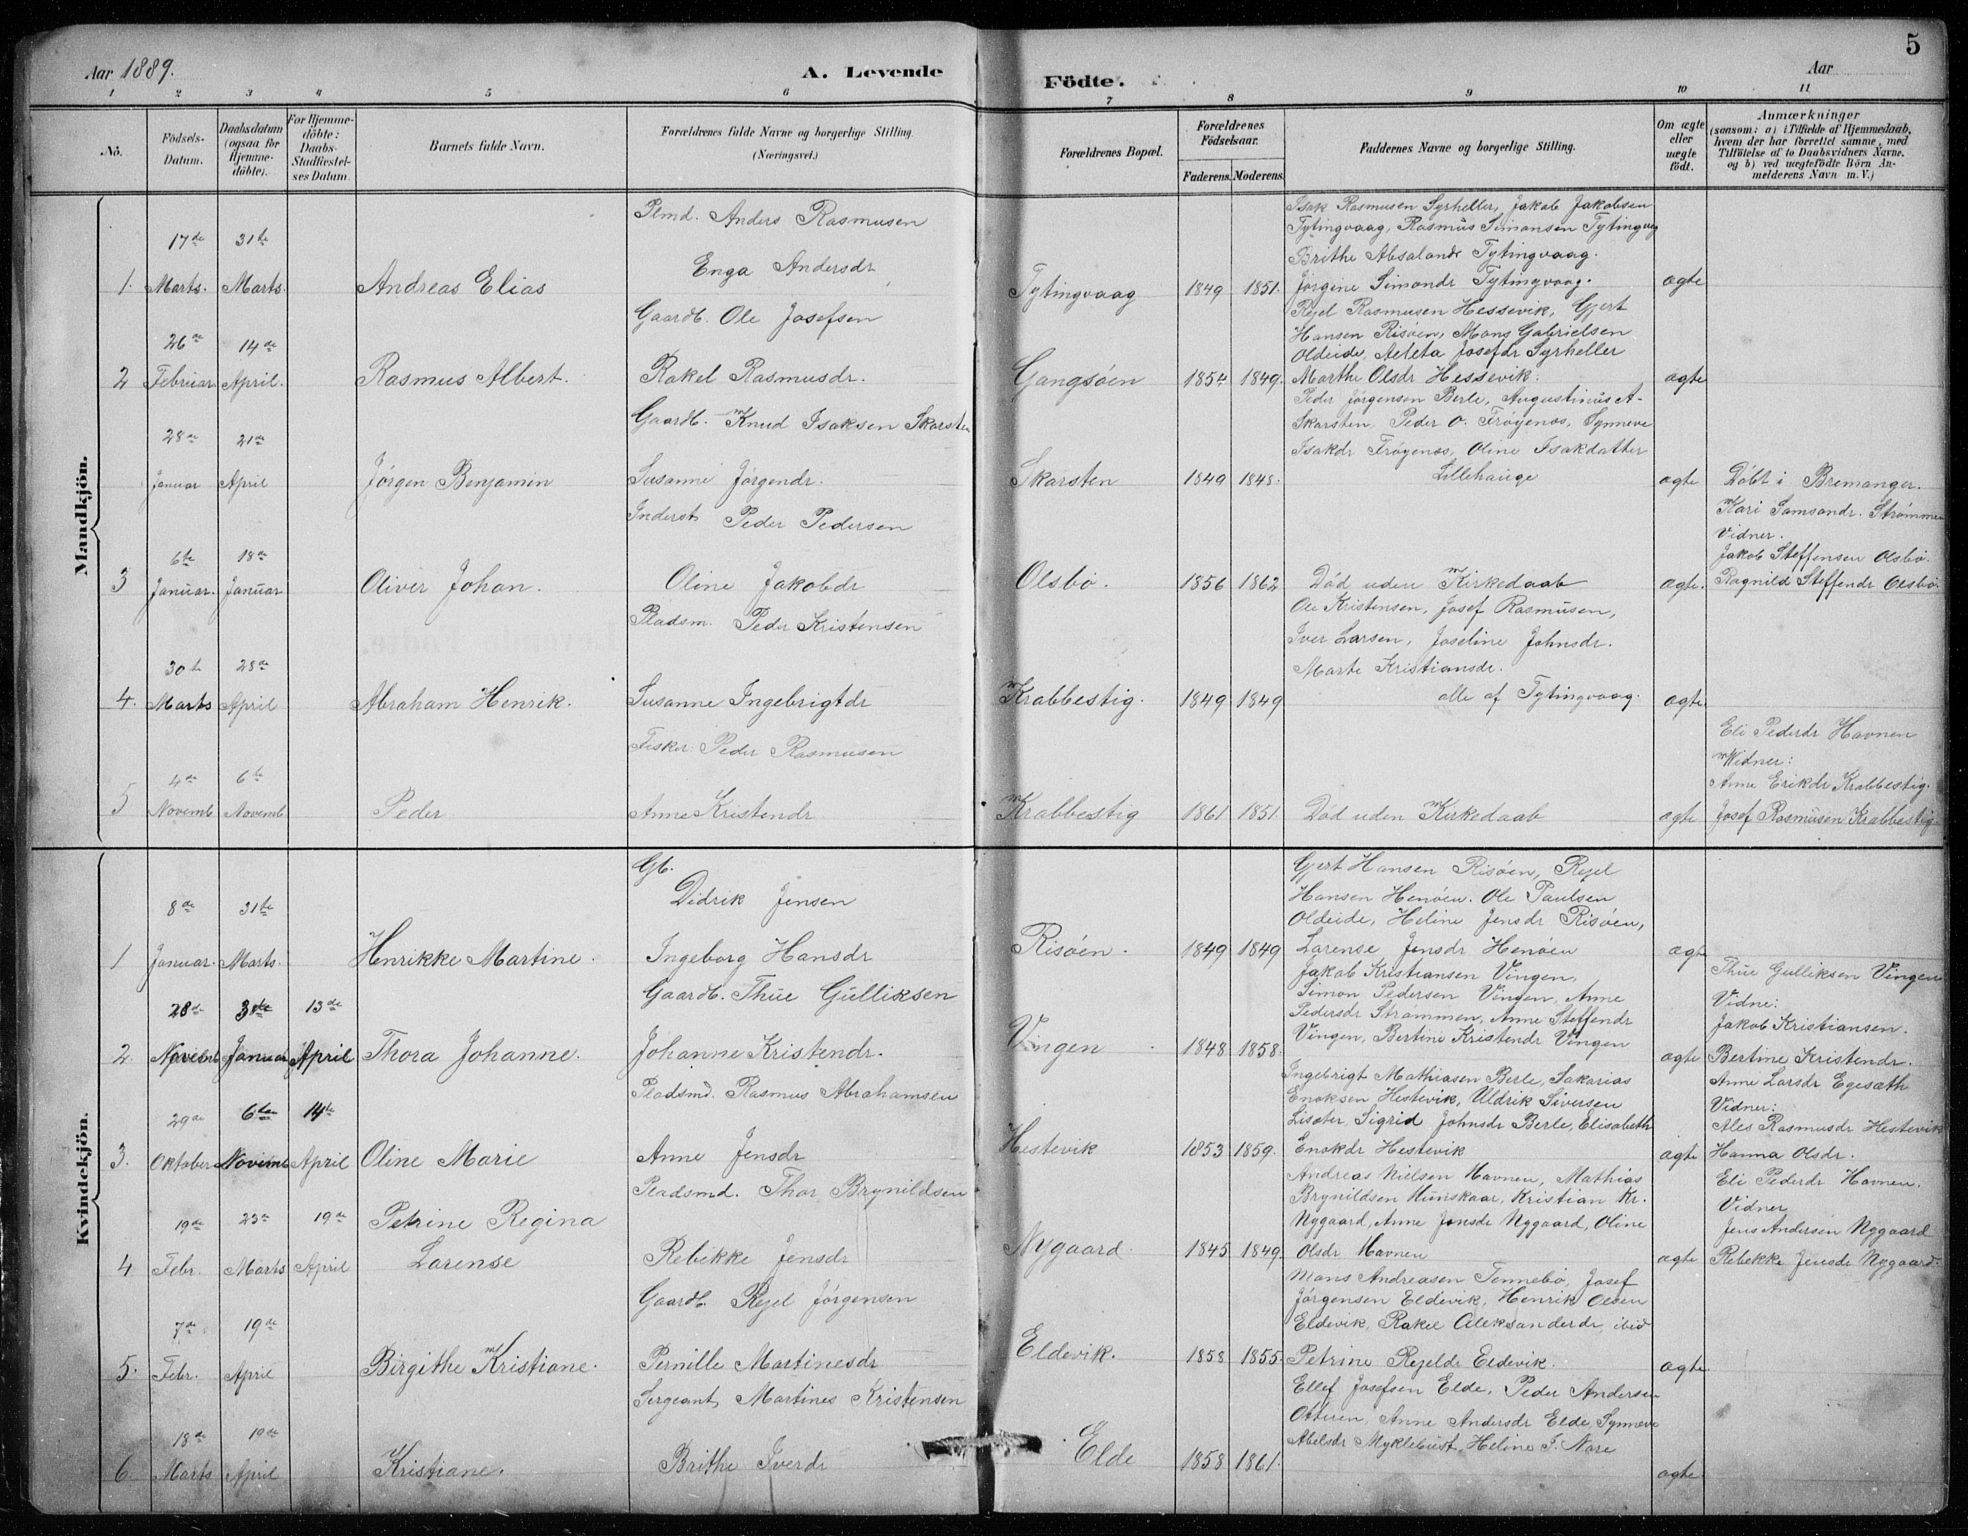 5
Aar 1889.
A. Levende Födte.
Aar
1 2 3 4 5 6 7 8 9 10 11
No.
Födsels-Datum.
Daabsdatum (ogsaa for Hjemmedöbte).
For Hjemmedöbte: Daabs-Stadfæstelses Datum.
Barnets fulde Navn.
Forældrenes fulde Navne og borgerlige Stilling.
(Næringsvei.)
Forældrenes Bopæl.
Forældrenes Födselsaar.
Faderens. Moderens.
Faddernes Navne og borgerlige Stilling.
Om ægte eller uægte födt.
Anmærkninger
(saasom: a) i Tilfælde af Hjemmedaab, hvem der har forrettet samme, med Tilföielse af to Daabsvidners Navne, og b) ved uægtefödte Börn Anmelderens Navn m. V.)
Mandkjön.
1. 17de Marts. 31te Marts.
Andreas Elias
Plmd. Anders Rasmusen
Enga Andersdr
Tytingvaag 1849 1851.
Isak Rasmusen Syrheller, Jakob Jakobsen
Tytingvaag, Rasmus Simonsen Tytingvag
Brithe Absalondr Tytingvaag.
Jørgine Simondr Tytingvaag.
ægte
2 26de Februar 14de April.
Rasmus Albert.
Gaardb. Ole Josefsen
Rakel Rasmusdr.
Gangsøen 1854 1849.
Rejel Rasmusen Hessevik, Gjert
Hansen Risøen, Mons Gabrielsen
Oldeide, Aeleta Josefdr Syrheller
Marthe Olsdr Hessevik.
ægte
28de Januar 21de April
Jørgen Benjamin
Gaardb. Knud Isaksen Skarsten
Susanne Jørgendr.
Skarsten 1849 1848.
Peder Jørgensen Berle, Augustinus A-
Skarsten, Peder O. Frøyenæs, Synneve
Isakdr Frøyenæs, Oline Isakdatter
Lillehauge
ægte
Döbt i Bremanger.
3 6te Januar. 18de Januar
Oliver Johan.
Inderst Peder Pedersen
Oline Jakobdr
Olsbö. 1856 1862
Död uden Kirkedaab
ægte.
Kari Samsondr. Strömmen
Vidner.
Jakob Steffensen Olsbö.
Ragnild Steffendr Olsbö.
4. 30te Marts 28de April
Abraham Henrik.
Pladsm. Peder Kristensen
Susanne Ingebrigtdr
Krabbestig. 1849 1849
Ole Kristensen, Josef Rasmusen,
Iver Larsen, Joseline Johnsdr.
Marte Kristiansdr.
alle af Tytingvaag.
ægte
5 4de Novemb 6te Novemb
Peder
Fisker. Peder Rasmusen
Anne Kristendr
Krabbestig 1861 1851.
Död uden Kirkedaab
ægte
Eli Pederdr Havnen
Widner:
Anne Erikdr Krabbestig.
Josef Rasmusen Krabbestig.
Kvindekjön.
1 8de Januar. 31te Marts.
Henrikke Martine.
Gb. Didrik Jensen
Ingeborg Hansdr
Risöen. 1849 1849
Gjert Hansen Risöen, Rejel
Hansen Henöen. Ole Paulsen
Oldeide, Heline Jensdr Risöen,
Larense Jensdr Henöen
ægte
2. 28de Novemb 30te Januar 13de April
Thora Johanne.
Gaardb. Thue Gulliksen
Johanne Kristendr.
Vingen 1848 1858.
Jakob Kristiansen Vingen,
Simon Pedersen Vingen, Anne
Pedersdr Strømmen, Anne Steffendr
Vingen, Bertine Kristendr Vingen
ægte
Thue Gulliksen Vingen
Vidne:
Jakob Kristiansen.
Bertine Kristendr.
3. 29de Oktober 6te Novemb 14te April
Oline Marie
Pladsmd. Rasmus Abrahamsen
Anne Jensdr
Hestevik 1853 1859.
Ingebrigt Mathiasen Berle, Sakarias
Enoksen Hestevik, Uldrik Siversen
Liseter, Sigrid Johnsdr Berle, Elisabeth
Enokdr Hestevik
ægte
Anne Larsdr Egesæth
Vidner:
Ales Rasmusdr Hestevik
Hanna Olsdr.
4 19de Febr. 23de Marts 19de April
Petrine Regina
Larense
Pladsmd. Thor Brynildsen
Rebikke Jensdr
Nygaard. 1845 1849.
Andreas Nielsen Havnen, Mathias
Brynildsen Hunskaar, Kristian Kr.
Nygaard, Anne Jonsdr Nygaard, Oline
Olsdr Havnen
ægte
Eli Pederdr Havnen.
Vidner
Jens Andersen Nygaard
Rebekke Jensdr Nygaard.
5. 7de Febr. 19de April
Birgithe Kristiane.
Gaardb. Rejel Jörgensen
Pernille Martinesdr
Eldevik. 1858 1855.
Mons Andreasen Tennebö, Josef
Jörgensen Eldevik, Henrik Olsen
Eldevik, Rakel Aleksanderdr, ibid
Petrine Rejeldr Eldevik.
ægte
6. 18de Marts 19de April
Kristiane.
Sergeant Martines Kristensen
Brithe Iverdr
Elde 1858 1861.
Ellef Josefsen Elde, Peder Andersen
Otteren, Anne Andersdr Elde, Synneve
Abelsdr Myklebust, Heline J. Nare
ægte